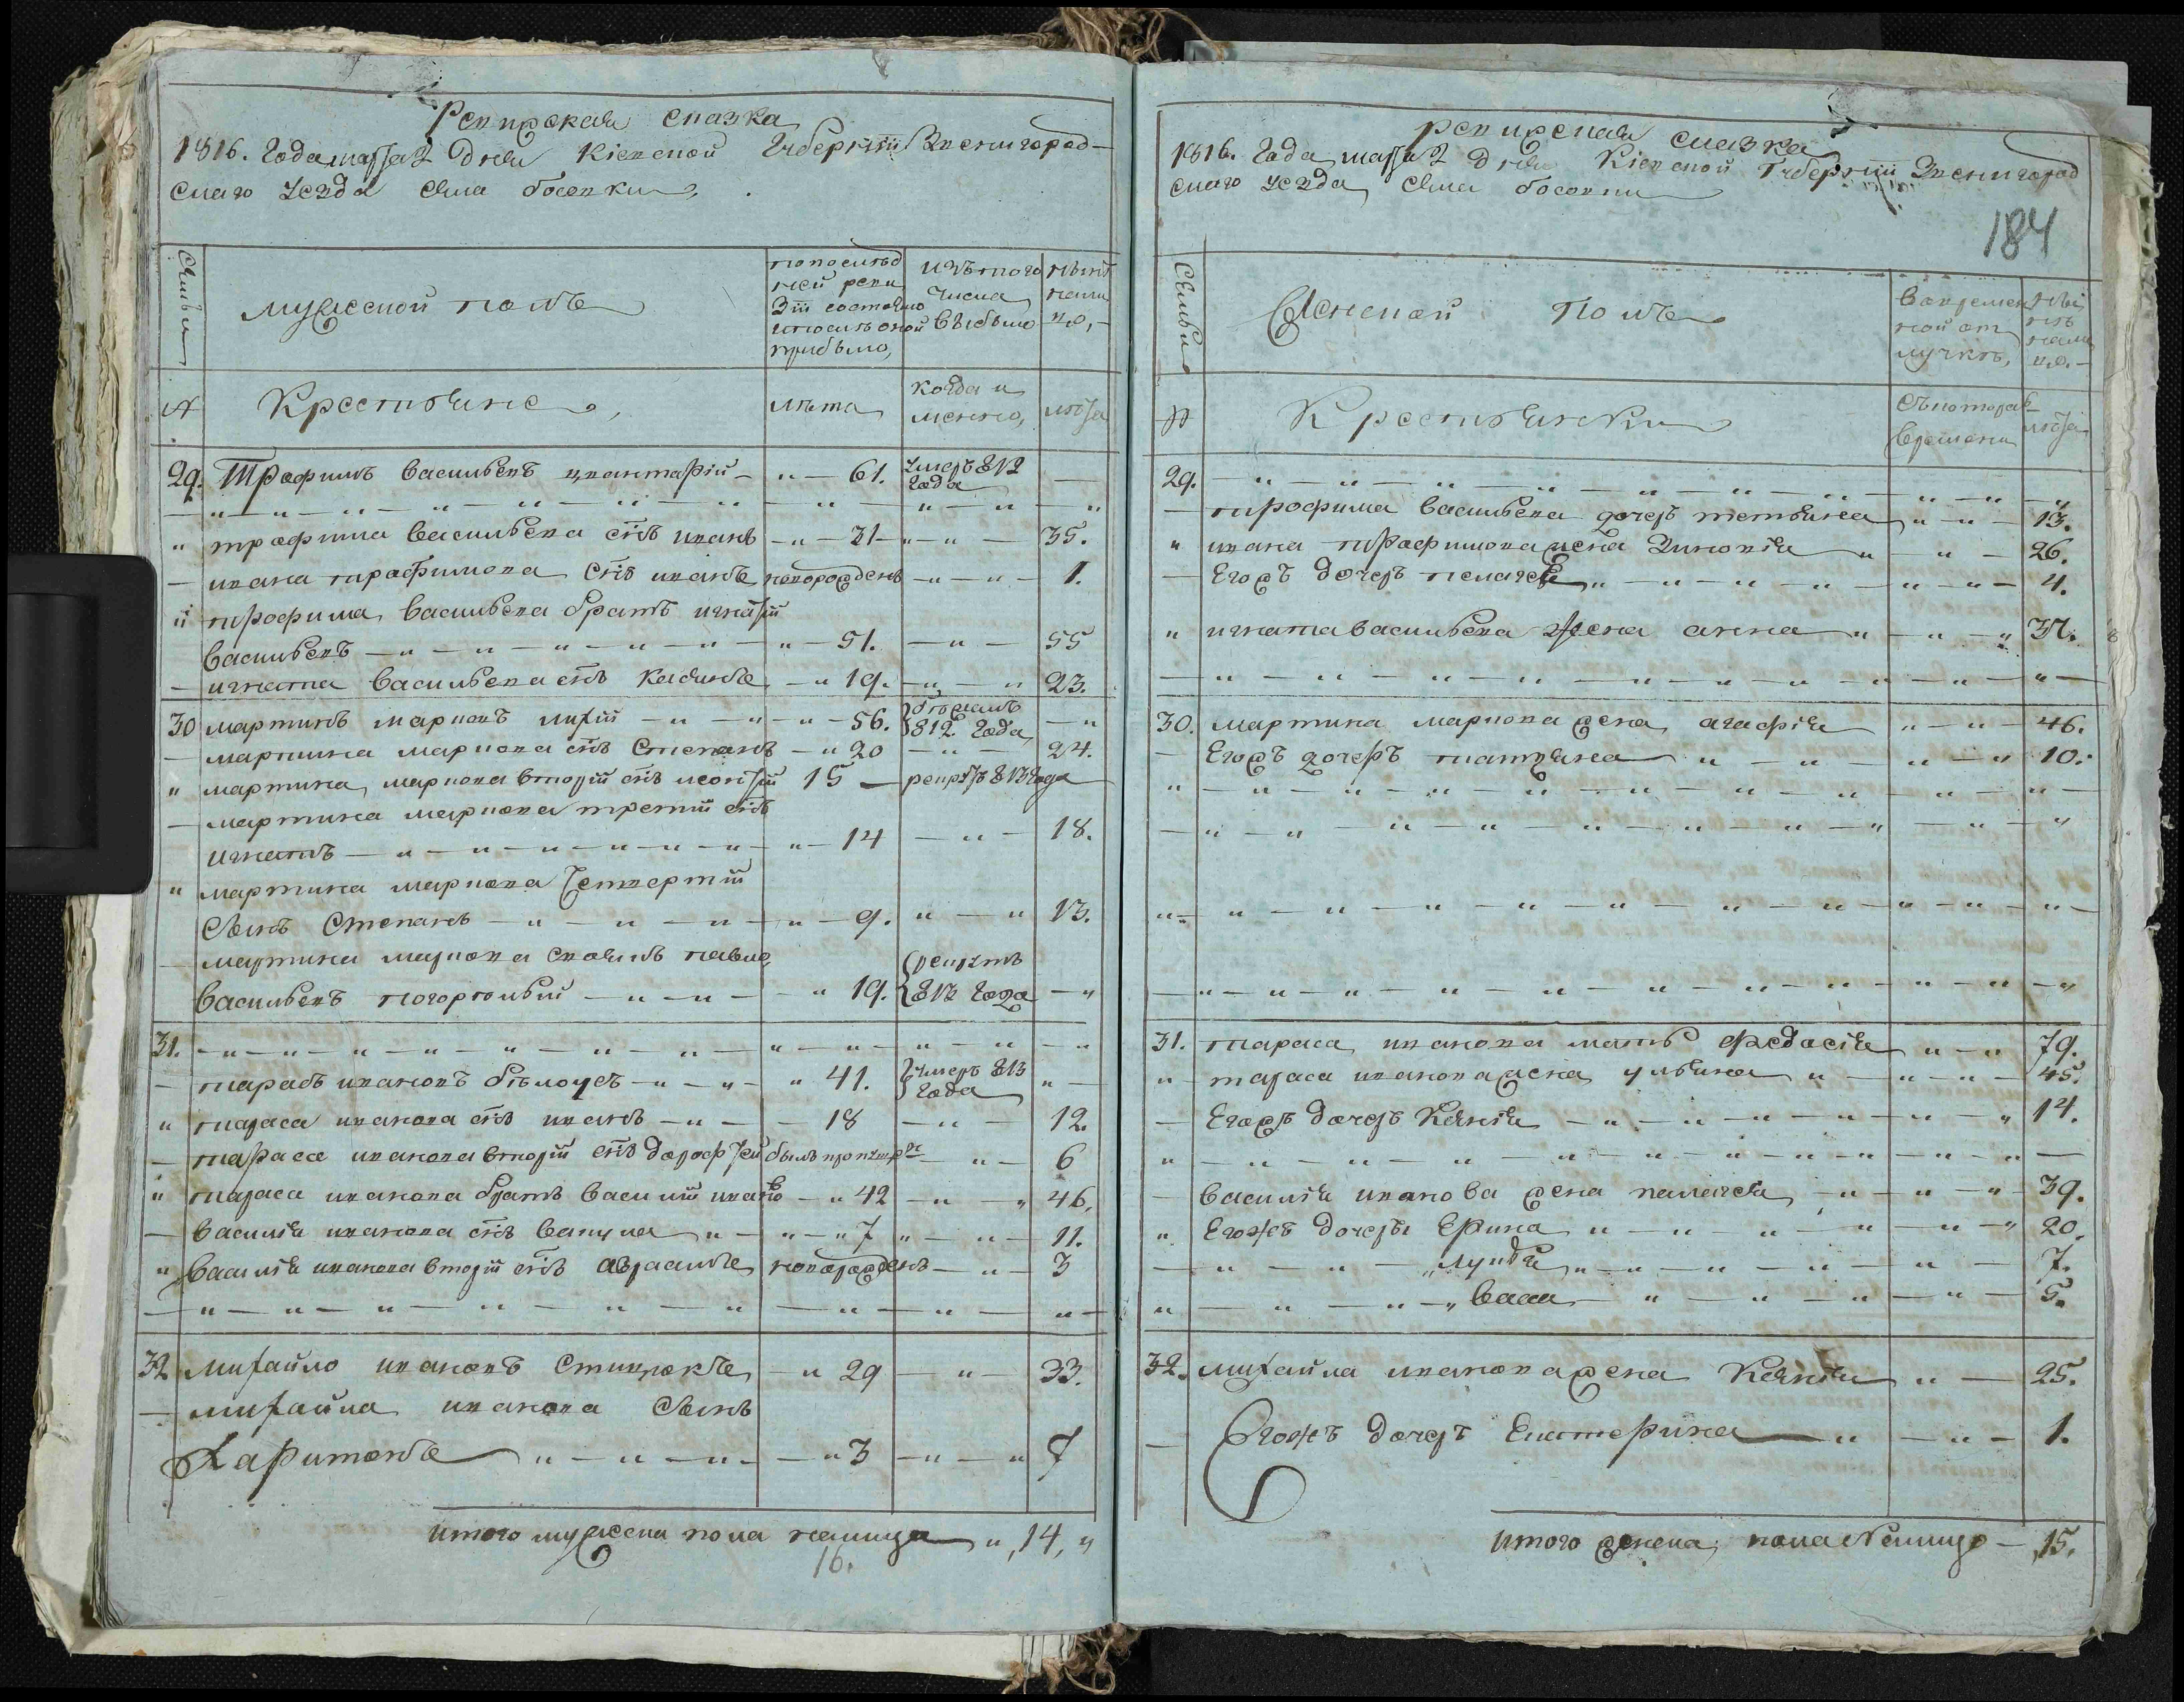 Ревизская сказка
1816. Года марта 2 дня Кіевской Губерніи Звенигород–
скаго уезда села босовки
семьи
мужеской полъ
по последней ревизіи состояло и после оной прибыло,
изъ того числа выбыло
ныне на лицо,
№
Крестьяне,
лета
когда именно,
лета
29. Трофимъ васильевъ — " — 61. умеръ 812 года —
" трофима васильева снъ иванъ — " — 31 — " — " — 35.
— ивана трофимова снъ иванъ новорожденъ — " — " — 1.
" трофима васильева братъ игнатій
васильевъ — " — " — " — " — " " — 51. — " — 55
— игната васильева снъ касянъ — " 19. — " — " 23.
30 мартинъ марковъ — " — " — " — 56. 812. года — "
— мартина маркова снъ степанъ — " 20 — " — 24.
" мартина маркова вторій снъ леонтій 15 — рекрутъ 813 года
— мартина маркова третій снъ
игнатъ — " — " — " — " — " — " — " — 14 — " — 18.
" мартина маркова четвертій
сынъ степанъ — " — " — " — " — 9. " — " 13.
— мартина маркова своякъ павло
васильевъ — " — " — " 19. рекрутъ 812 года — "
31. — " — " — " — " — " — " — " — " — " — " — " — " — "
— тарасъ ивановъ белоусъ — " — " — " 41. умеръ 813 года " —
" тараса иванова снъ иванъ — " — — 18 — " — 12.
— тараса иванова вторій снъ дорофей былъ " — 6
" тараса иванова братъ василій ивановъ — " 42 — " — " 46.
— василія иванова снъ вакула " — " — " 7 " — " — 11.
" василія иванова вторій снъ авраамъ новорожденъ — " — 3
— " — " — " — " — " — " — " — " — " —
32 михайло ивановъ — " 29 — " — 33.
— михайла иванова сынъ
харитонъ " — " — " — — " 3 — " — " 7
итого мужеска пола налицо ", 14, "
16.
ревизская сказка
1816. Года марта 2 дня Кіевской Губерніи Звенигород
скаго уезда села босовки
184
семьи
Женской полъ
во временной отлучке,
ныне на лицо. —
№
Крестьянки
съ котораго времени
лета
29. — " — " — " — " — " — " — " — " — " — "
— трофима васильева дочерь тетьяна " — " — 13.
" ивана трофимова жена зиновія " — " — 26.
— Егожъ дочерь пелагея " — " — " — " — " — " — 4.
" игната васильева жена анна " — " — " 37.
— " — " — " — " — " — " — " — " — " —
30. мартина маркова жена агафія " — " — 46.
— Егожъ дочерь татяна " — " — " — " 10.
" — " — " — " — " — " — " — " — " — " — " —
— " — " — " — " — " — " — " — " — " — "
" — " — " — " — " — " — " — " — " — " — " —
— " — " — " — " — " — " — " — " — " — " — "
31. тараса иванова мать федосія " — " 79.
" тараса иванова жена ульяна " — " — " — 45.
— Егожъ дочерь Ксенія — " — " — " — " — " 14.
" — " — " — " — " — " — " — " — " — " —
— василія иванова жена палагея — " — " — " 39.
" Егожъ дочеры Ерина " — " — " — " — " — " 20.
— " — " — " лукія " — " — " — " — " — 7.
" — " — " — " васа — " — " — " — " — 5.
32. михайла иванова жена Ксенія " — 25.
— Егожъ дочерь Екатерина — " — " — 1.
Итого женска пола налицо — 15.